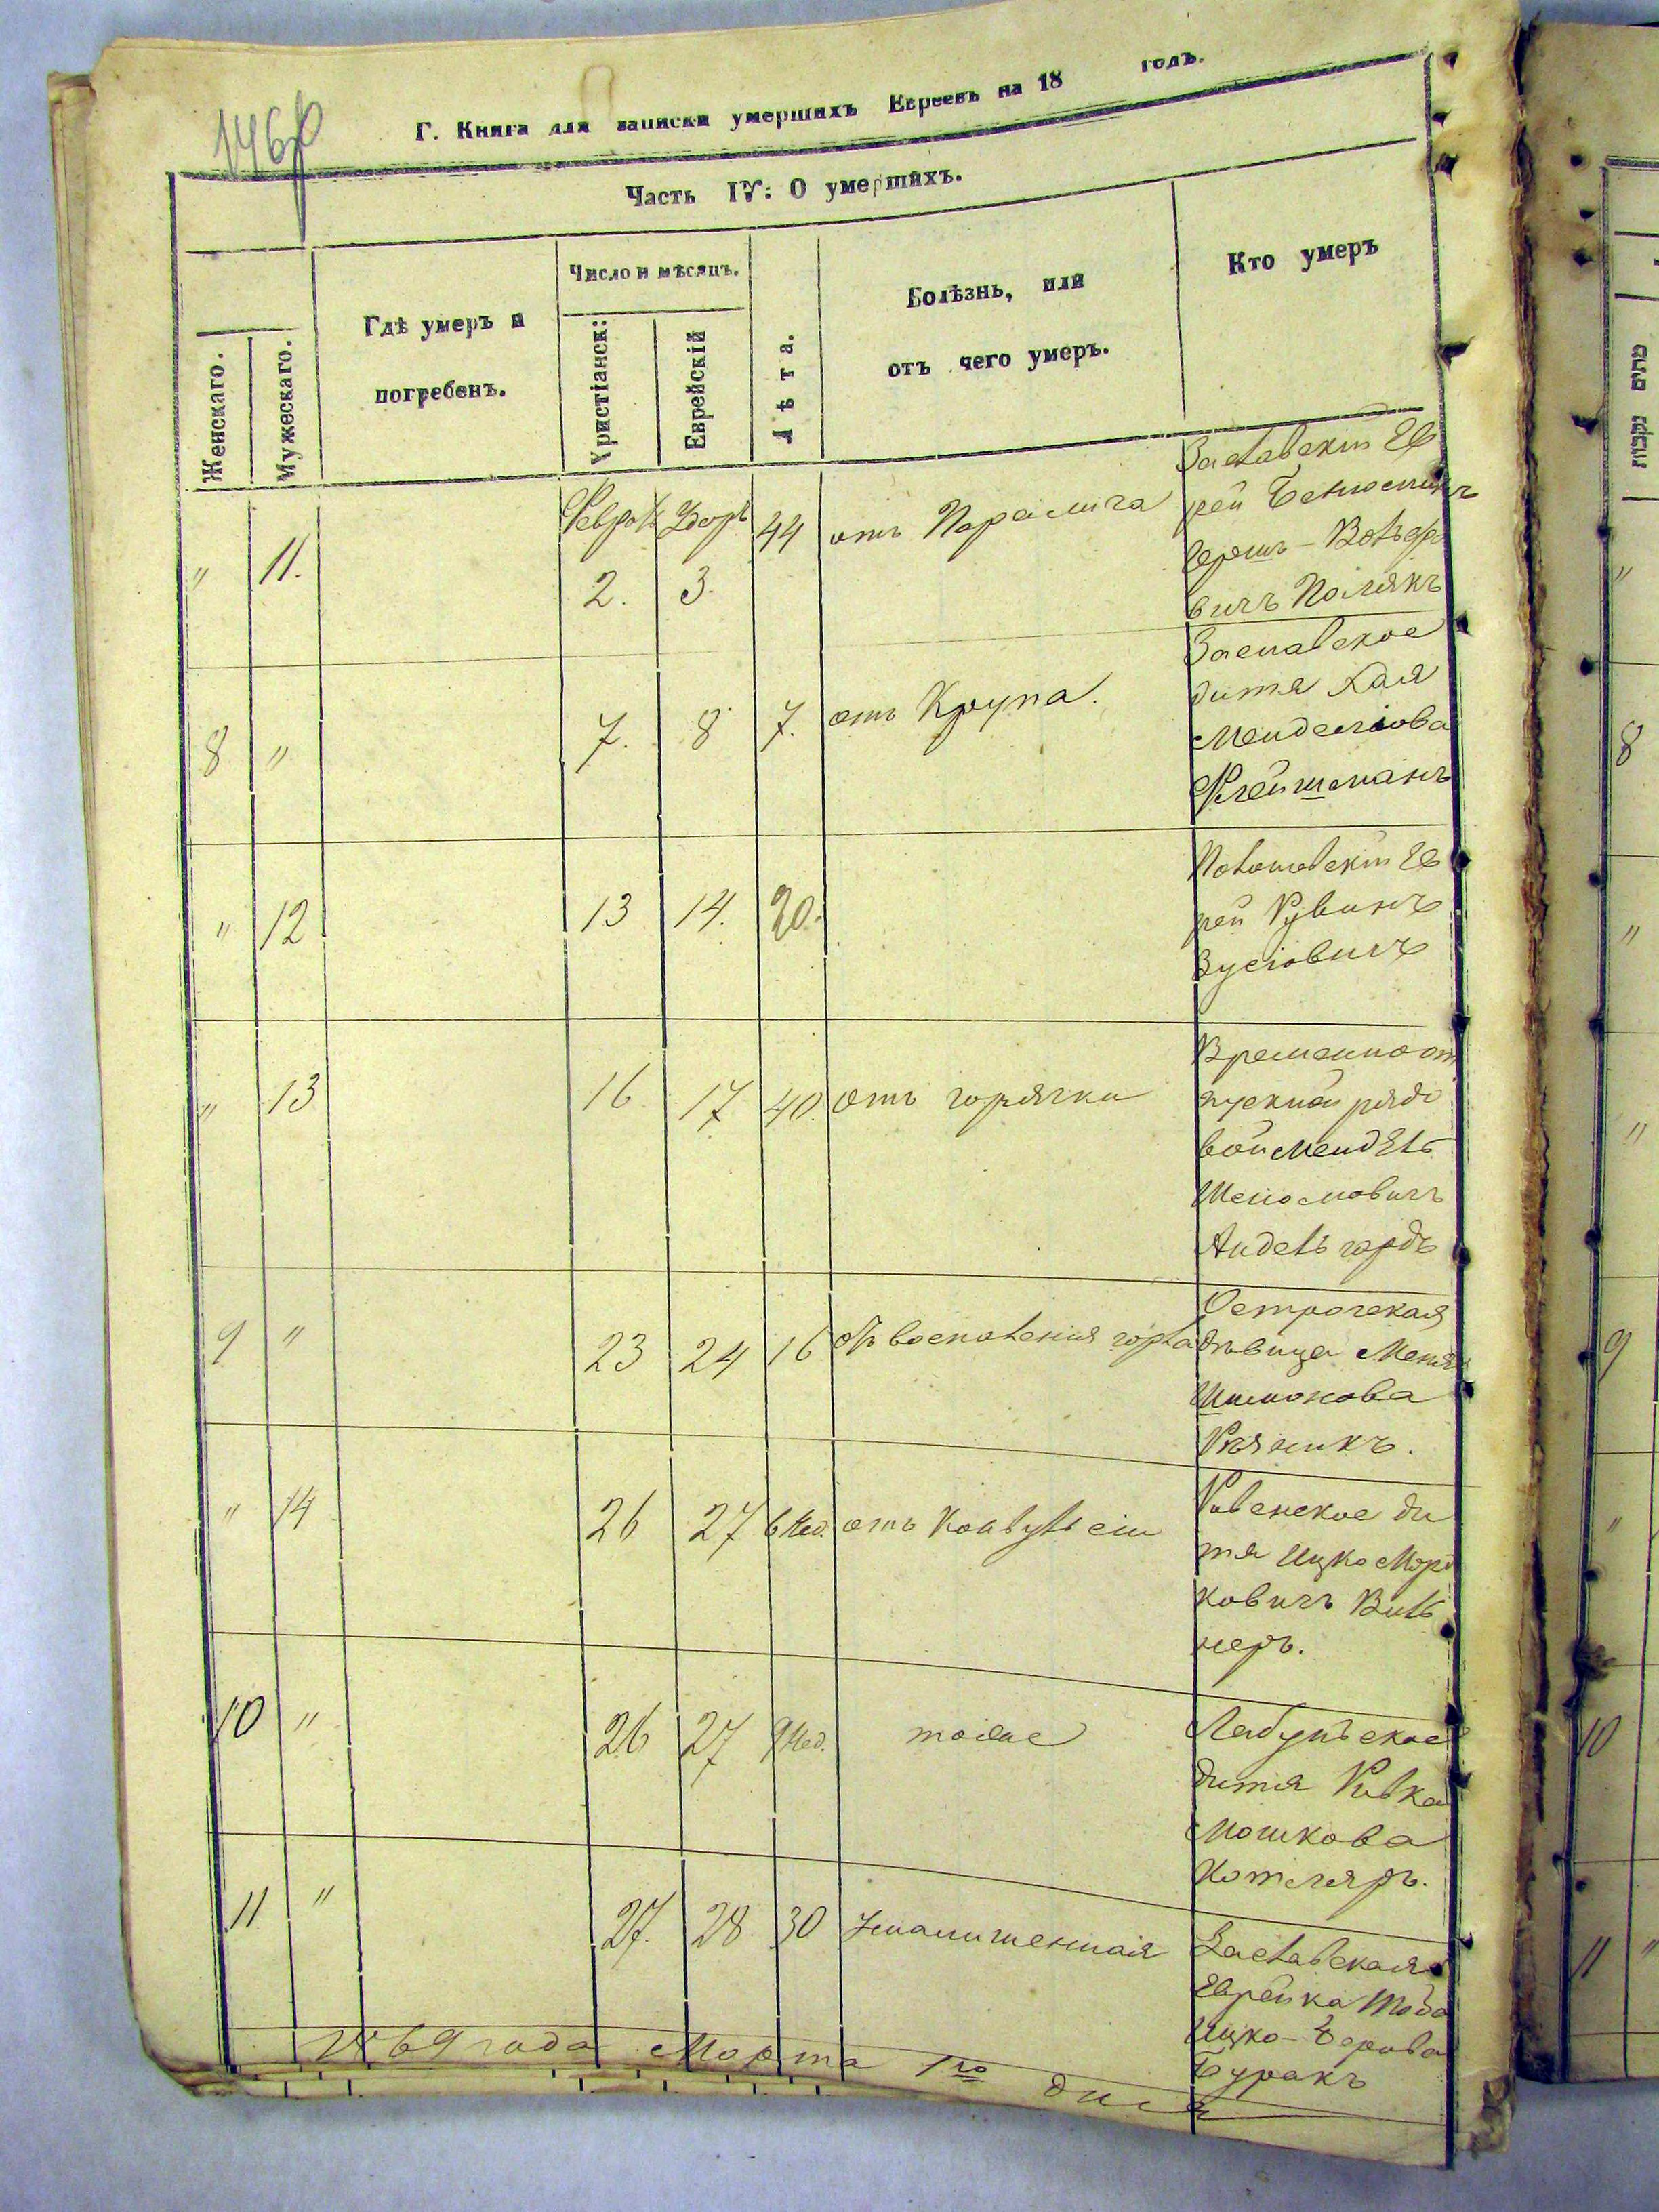 146
Г. Книга для записки умершихъ Евреевъ на 18 годъ.
Часть IV: О умершихъ.
Женскаго.
Мужескаго.
Гдѣ умеръ и
погребенъ.
Число и мѣсяцъ.
Христіанск:
Еврейскій
Лѣта.
Болѣзнь, или
отъ чего умеръ.
Кто умеръ
" 11. Февра 2. Удоръ 3. 44 отъ Паралича
Заславскій Ев
рей Беньоминъ
Гершъ-Вольфо
вичъ Полякъ
8 " 7. 8 7. отъ Крупа.
Заславское
дитя Хая
Менделіова
Клейшманъ
" 12 13 14. 20.
Полонскій Ев
рей Рувинъ
Зусіовичъ
" 13 16 17 40. отъ горячки
Временно от
пускной рядо
вой Мендель
Шеліомовичъ
Андельгордъ
9 " 23 24 16 отъ воспаленія горла
Острогская
дѣвица Меня
Шимонова
Рѣзникъ.
" 14 26 27 6 Нед. отъ Конвульсіи
Ровенское ди
тя Ицко Морд
ковичъ Виль
неръ.
10 " 26 27 9 Нед. тоже
Лабунское
дитя Ривка
Мошкова
Котляръ.
11 " 27. 28 30 Умалишенная
Заславская
Еврейка Тоба
Ицко-Берова
Буракъ
1869 года Марта 1го дня
מתים
נקבות
"
8
"
"
9
"
10
11 "